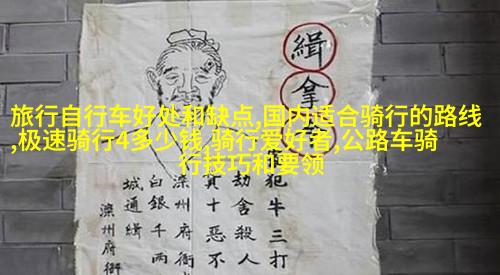 旅行自行车好处和缺点,国内适合骑行的路线
,极速骑行4多少钱,骑行爱好者,公路车骑
行技巧和要领
緝拿
犯牛三打
劫舍殺人
十惡不
滦州府衙
白銀千两
城通緝
滦州府衙